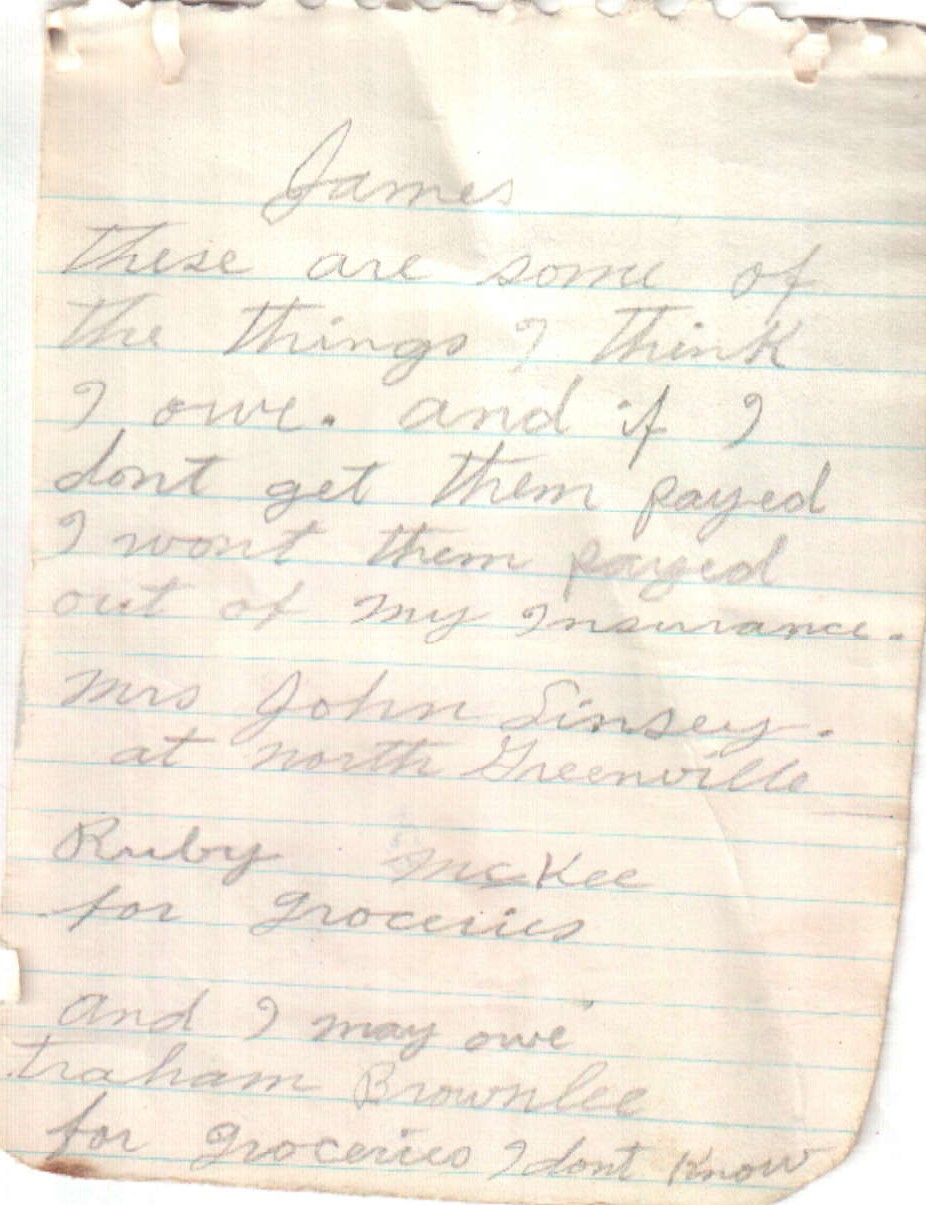 James
These are some of
the things I think
I owe. and if I
dont get them payed
I wont them payed
out of my Insurance.
Mrs John Linsey.
at north Greenville
Ruby McKee
for groceries
and I may owe
Traham Brownlee
for groceries I dont know